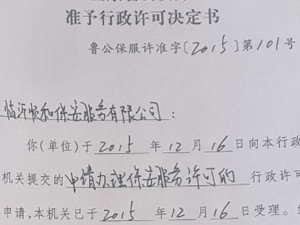 准予行政许可决定书
鲁公保服许准字[2015]第101号
临沂顺和保安服务有限公司:
你(单位)于 2015 年 12 月 16 日向本行政
机关提交的申请办理保安服务许可的 行政许可
申请,本机关已于 2015 年 12 月 16 日受理。